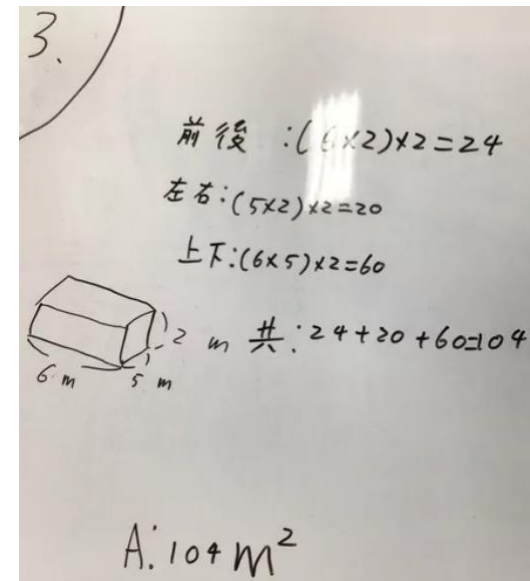 3.
前後:(6×2)×2=24
左右:(5×2)×2=20
上下:(6×5)×2=60
2 m
共:24+20+60=104
6 m
5 m
A:104m²